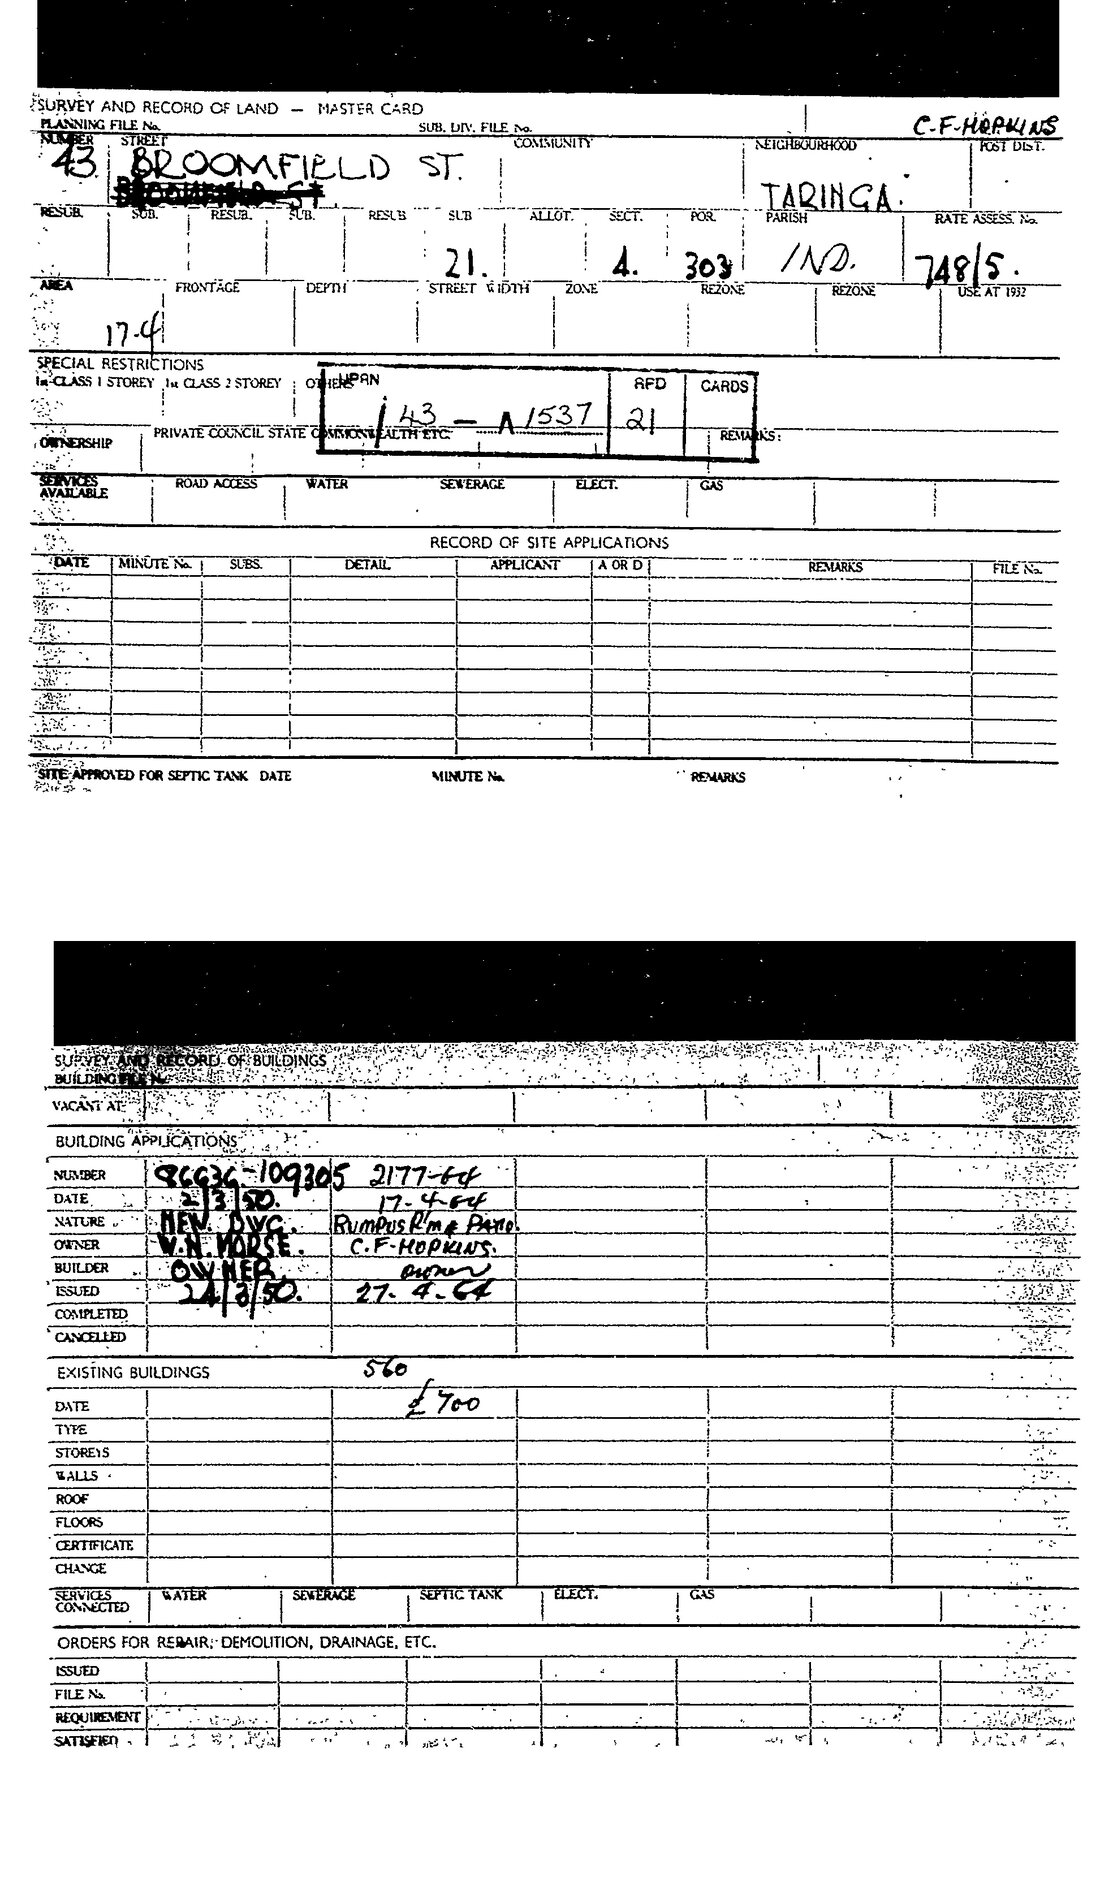 SURVEY AND RECORD OF LAND — MASTER CARD
PLANNING FILE No. SUB. DIV. FILE No. C-F-HOPKINS
NUMBER STREET COMMUNITY NEIGHBOURHOOD POST DIST.
43 BROOMFIELD ST. TARINGA.
BROOMFIELD ST
RESUB. SUB. RESUB. SUB. RESUB SUB ALLOT. SECT. POR. PARISH RATE ASSESS. No.
21. 4. 303 IND. 748/5.
AREA FRONTAGE DEPTH STREET WIDTH ZONE REZONE REZONE USE AT 1932
17.4
SPECIAL RESTRICTIONS
1st CLASS 1 STOREY 1st CLASS 2 STOREY OTHERS UPRN RFD CARDS
43 — 1537 21
OWNERSHIP PRIVATE COUNCIL STATE COMMONWEALTH ETC. REMARKS:
SERVICES AVAILABLE ROAD ACCESS WATER SEWERAGE ELECT. GAS
RECORD OF SITE APPLICATIONS
DATE MINUTE No. SUBS. DETAIL APPLICANT A OR D REMARKS FILE No.
SITE APPROVED FOR SEPTIC TANK DATE MINUTE No. REMARKS
SURVEY AND RECORD OF BUILDINGS
BUILDING FILE No.
VACANT AT
BUILDING APPLICATIONS
NUMBER 86636-109305 2177-64
DATE 2/3/50. 17-4-64
NATURE NEW. DWG. RUMPUS R'm & PATIO.
OWNER W.N. MORSE. C.F-HOPKINS.
BUILDER OWNER owner
ISSUED 24/3/50. 27-4-64
COMPLETED
CANCELLED
EXISTING BUILDINGS 560
DATE £700
TYPE
STOREYS
WALLS
ROOF
FLOORS
CERTIFICATE
CHANGE
SERVICES CONNECTED WATER SEWERAGE SEPTIC TANK ELECT. GAS
ORDERS FOR REPAIR, DEMOLITION, DRAINAGE, ETC.
ISSUED
FILE No.
REQUIREMENT
SATISFIED